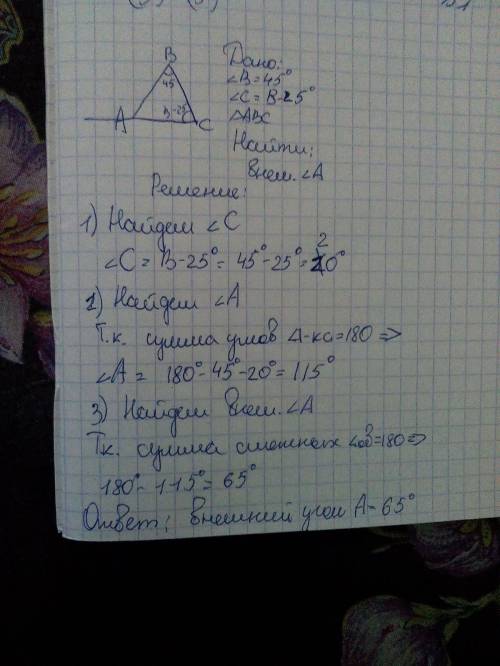 B
45
B-25
A
C
Дано:
∠B=45°
∠C= B-25°
△ABC
Найти:
внеш. ∠A
Решение:
1) Найдем ∠C
∠C= B-25°= 45°-25°= 20°
2) Найдем ∠A
Т.к. сумма углов Δ-ка=180 =>
∠A= 180°-45°-20°= 115°
3) Найдем внеш. ∠A
Тк. сумма смежных ∠ов=180 =>
180°- 115°= 65°
Ответ: внешний угол A- 65°